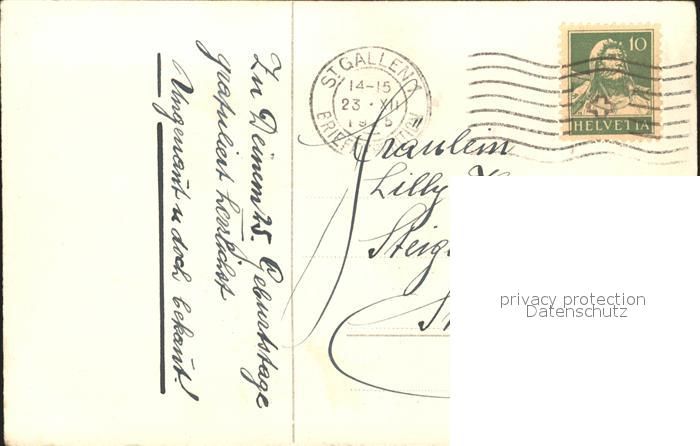 Zu Deinem 25. Geburtstage
gratuliert herzlichst
Ungenant u doch bekant!
ST. GALLEN 1
14-15
23. XII
BRIEF
10
HELVETIA
Fräulein
Lilly
Steig
St
privacy protection
Datenschutz